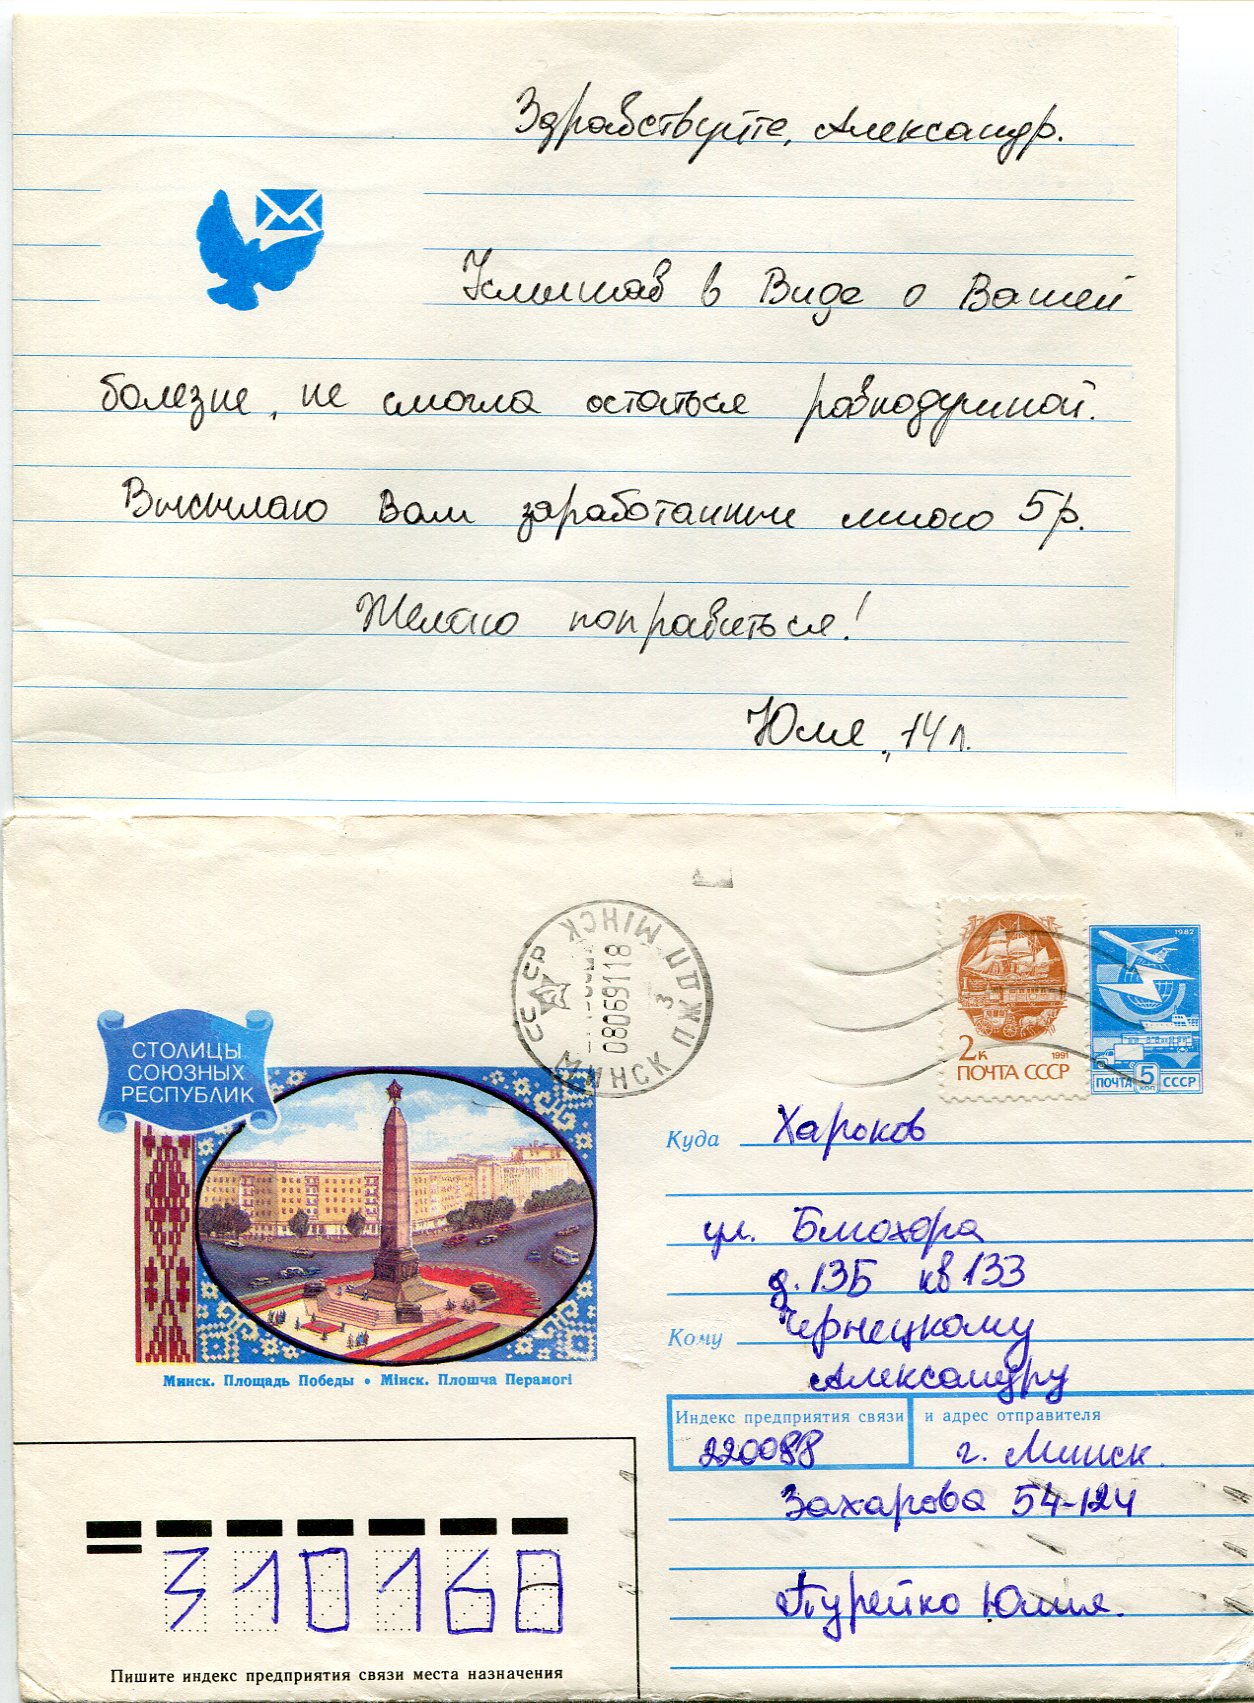 Здравствуйте, Александр.
Услышав в Виде о Вашей
болезне, не смогла остаться равнодушной.
Высылаю Вам заработанные мною 5 р.
Желаю поправиться!
Юля, 14 л.
МІНСК ПЖДП
СССР
08069118
3
МИНСК
1982
2к 1991
ПОЧТА СССР
ПОЧТА 5 КОП СССР
СТОЛИЦЫ
СОЮЗНЫХ
РЕСПУБЛИК
Минск. Площадь Победы • Мінск. Плошча Перамогі
Куда Харьков
ул. Блюхера
д. 13Б кв 133
Кому Чернецкому
Александру
Индекс предприятия связи и адрес отправителя
220088 г. Минск.
Захарова 54-124
Турейко Юлия.
310168
Пишите индекс предприятия связи места назначения